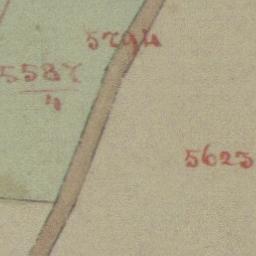 5794
5587
4
5623